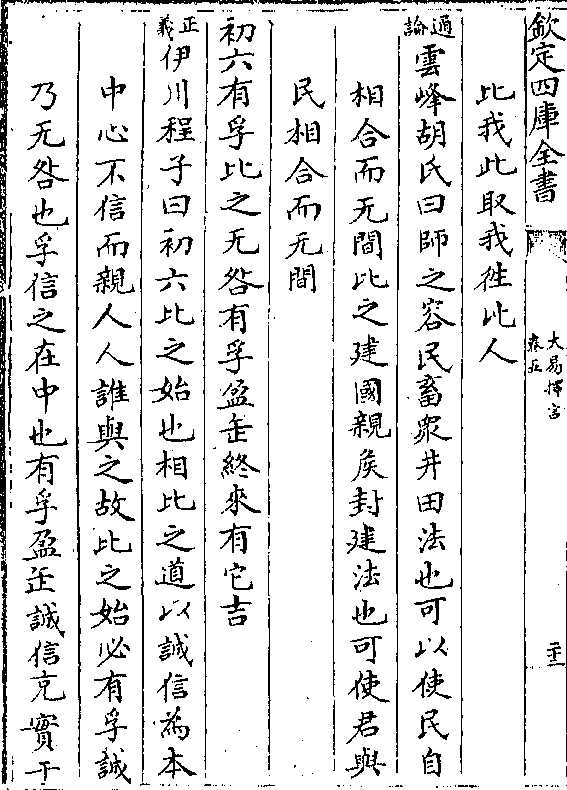 欽定四庫全書
大易擇言
卷五
二十二
比我此取我徃比人
通論雲峰胡氏曰師之容民畜衆井田法也可以使民自
相合而无間比之建國親侯封建法也可使君與
民相合而无間
初六有孚比之无咎有孚盈缶終來有它吉
正義伊川程子曰初六比之始也相比之道以誠信為本
中心不信而親人人誰與之故比之始必有孚誠
乃无咎也孚信之在中也有孚盈缶誠信充實于